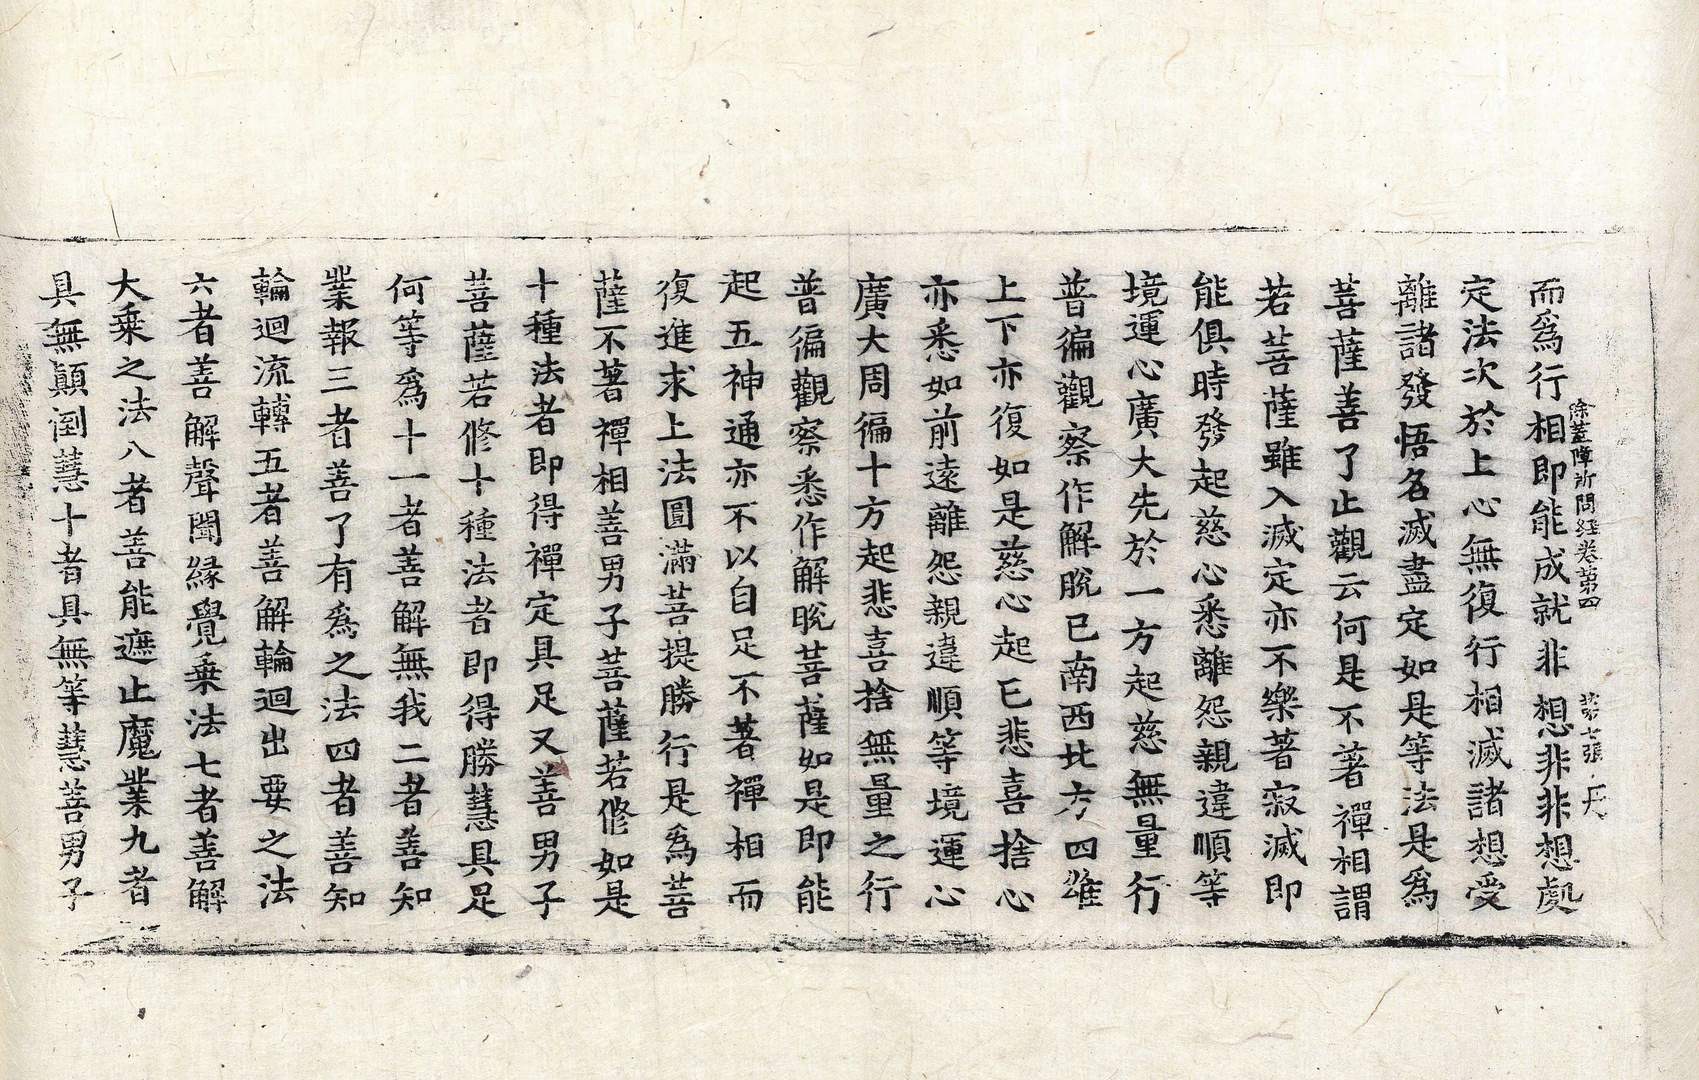 除蓋障所問經卷第四　第七張　丹
而爲行相即能成就非想非非想處
定法次於上心無復行相滅諸想受
離諸發悟名滅盡定如是等法是爲
菩薩善了止觀云何是不著禪相謂
若菩薩雖入滅定亦不樂著寂滅即
能俱時發起慈心悉離怨親違順等
境運心廣大先於一方起慈無量行
普徧觀察作解脫已南西北方四維
上下亦復如是慈心起已悲喜捨心
亦悉如前遠離怨親違順等境運心
廣大周徧十方起悲喜捨無量之行
普徧觀察悉作解脫菩薩如是即能
起五神通亦不以自足不著禪相而
復進求上法圓滿菩提勝行是爲菩
薩不著禪相善男子菩薩若修如是
十種法者即得禪定具足又善男子
菩薩若修十種法者即得勝慧具足
何等爲十一者善解無我二者善知
業報三者善了有爲之法四者善知
輪迴流轉五者善解輪迴出要之法
六者善解聲聞緣覺乘法七者善解
大乘之法八者善能遮止魔業九者
具無顚倒慧十者具無等慧善男子